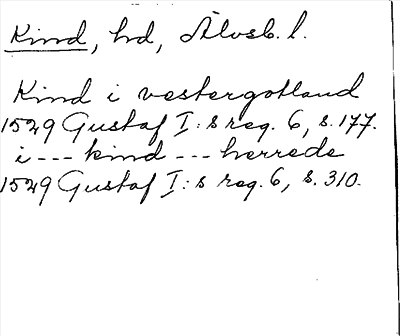 Kind, hd, Älvsb. l.
Kind i vestergotland
1529 Gustaf I:s reg. 6, s. 177.
i --- kind --- herrede
1529 Gustaf I:s reg. 6, s. 310.